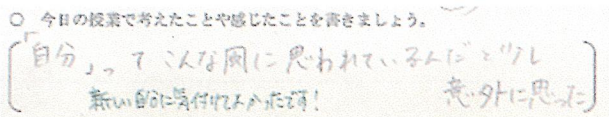 ○ 今日の授業で考えたことや感じたことを書きましょう。
「自分」って こんな風に思われているんだと少し
意外に思った
新しい自分に気付けてよかったです!